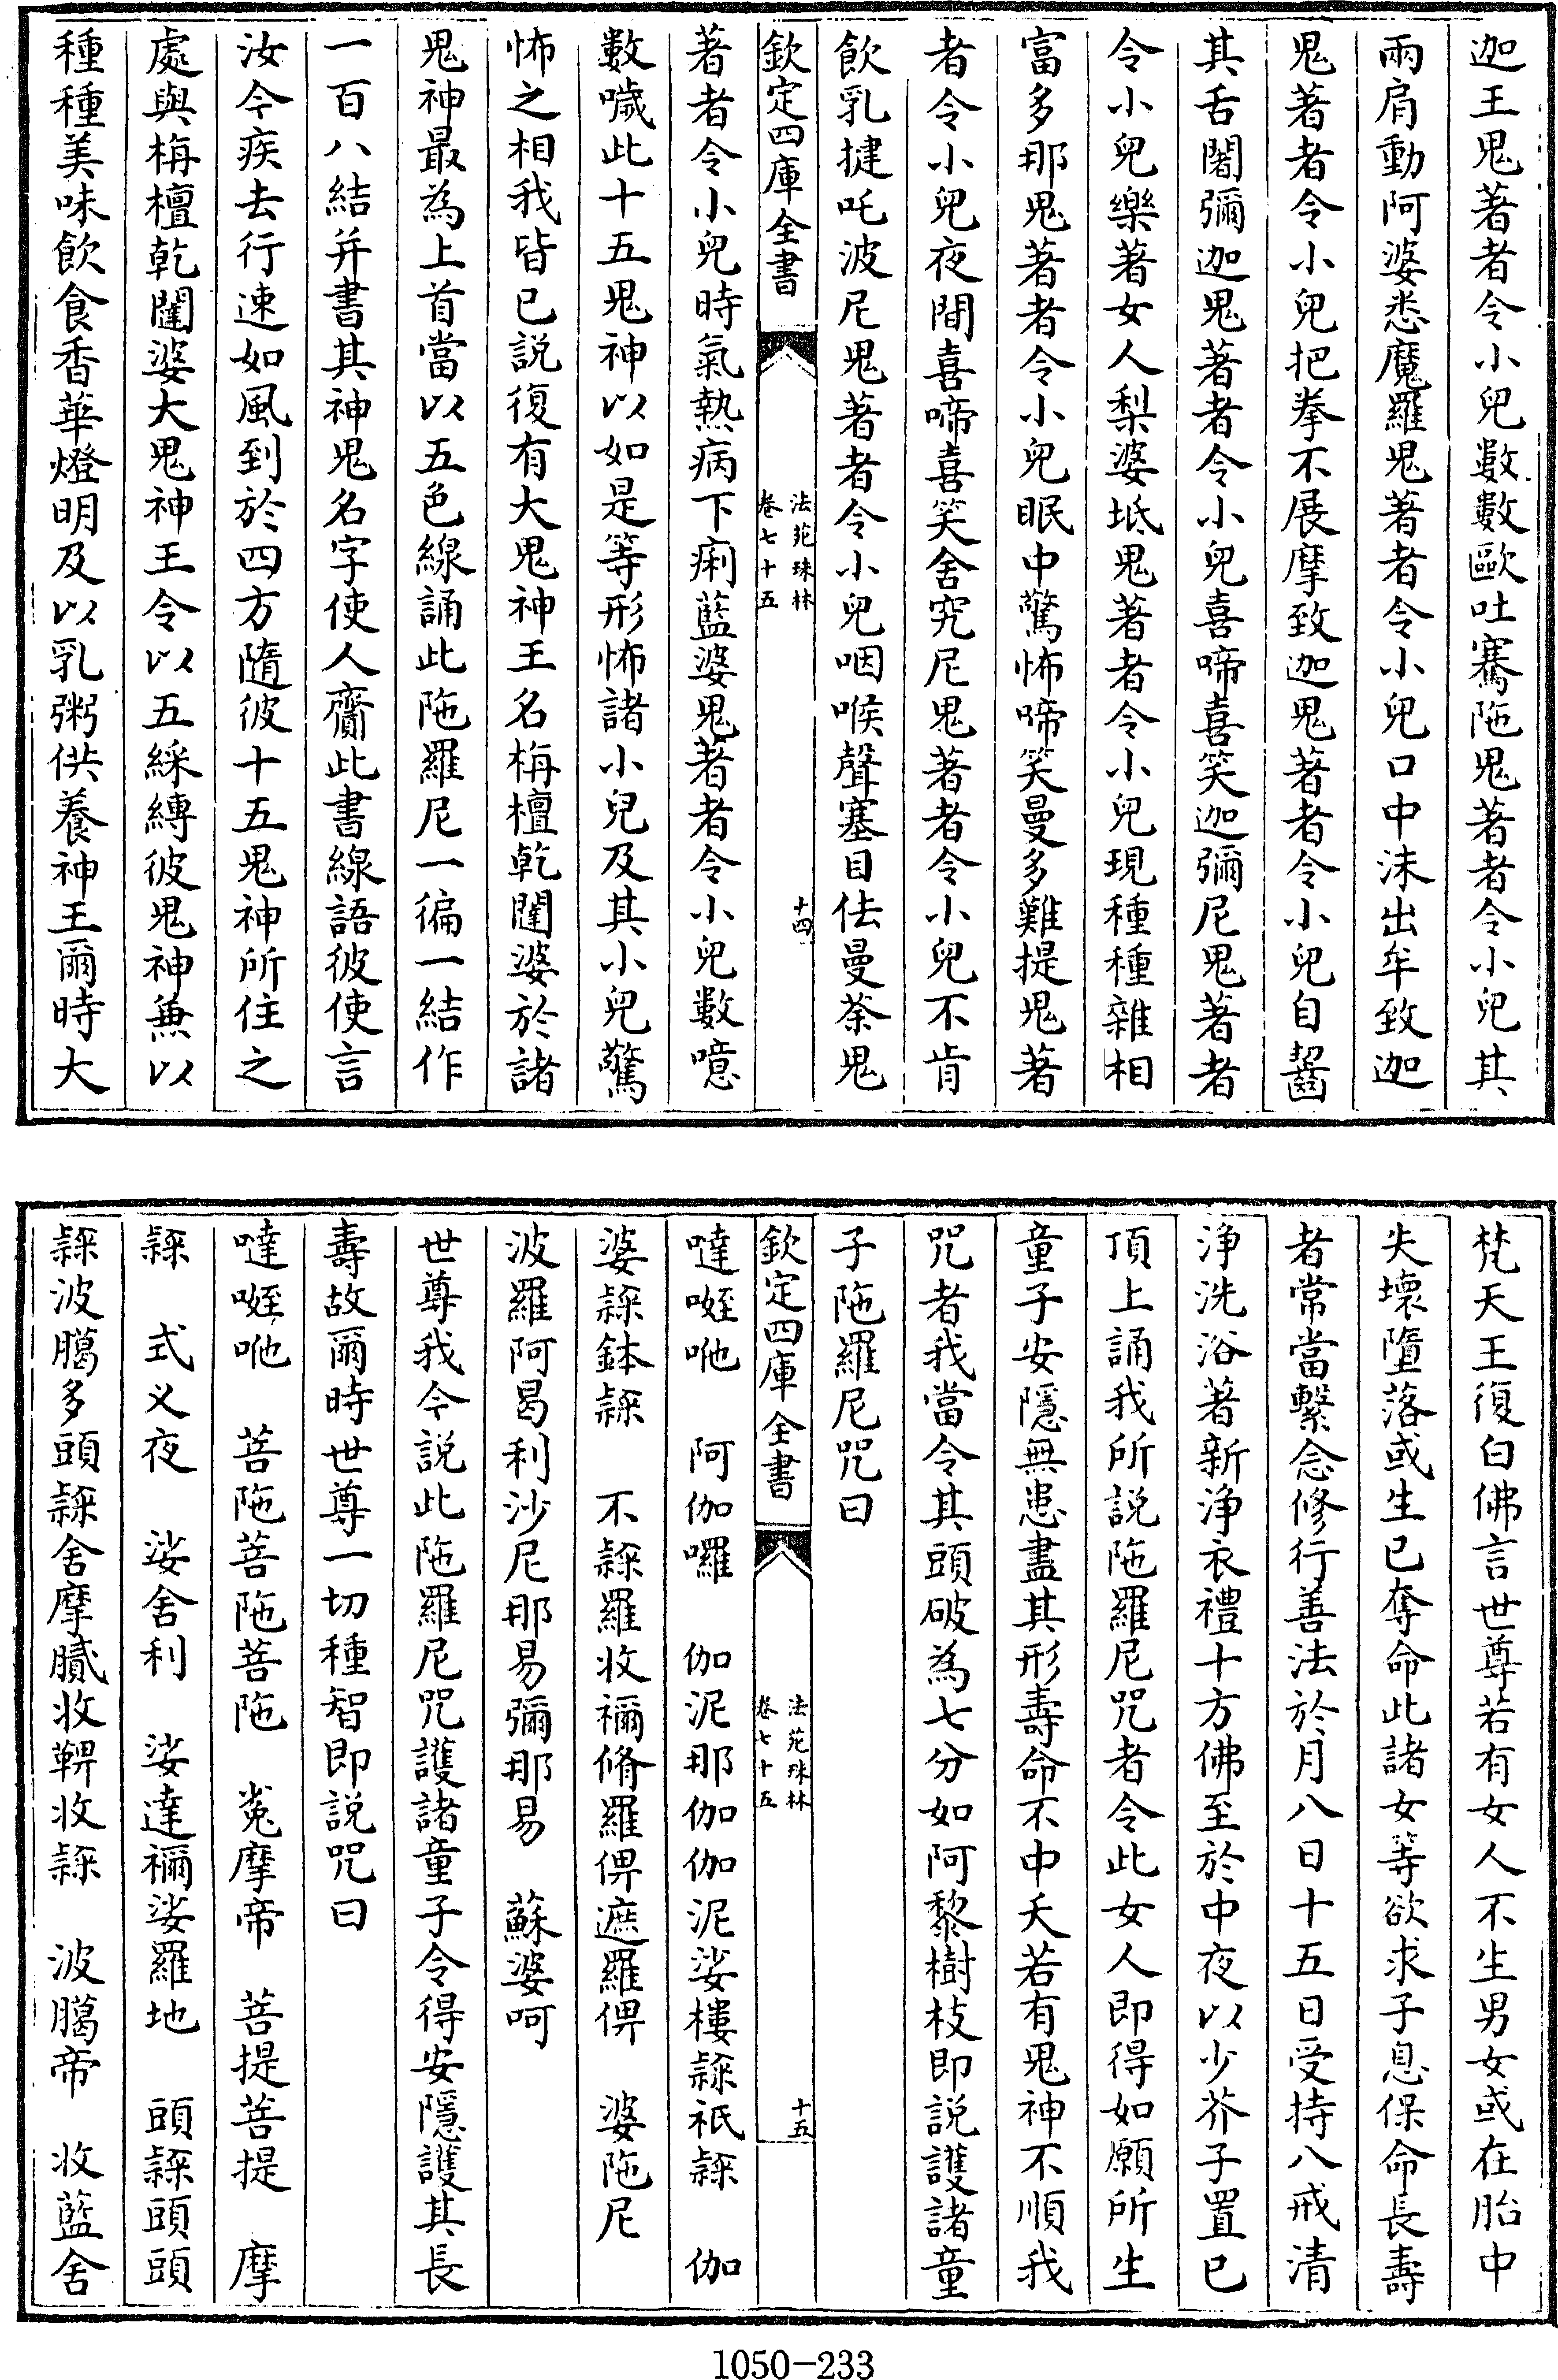 迦王鬼著者令小兒數數歐吐騫陁鬼著者令小兒其
兩肩動阿婆悉魔羅鬼著者令小兒口中沫出牟致迦
鬼著者令小兒把拳不展摩致迦鬼著者令小兒自齧
其舌閣彌迦鬼著者令小兒喜啼喜笑迦彌尼鬼著者
令小兒樂著女人梨婆坻鬼著者令小兒現種種雜相
富多那鬼著者令小兒眠中驚怖啼笑曼多難提鬼著
者令小兒夜間喜啼喜笑舍究尼鬼著者令小兒不肯
飲乳揵吒波尼鬼著者令小兒咽喉聲塞目佉曼荼鬼
欽定四庫全書 法苑珠林卷七十五 十四
著者令小兒時氣熱病下痢藍婆鬼著者令小兒數噫
數噦此十五鬼神以如是等形怖諸小兒及其小兒驚
怖之相我皆已說復有大鬼神王名栴檀乾闥婆於諸
鬼神最為上首當以五色線誦此陁羅尼一徧一結作
一百八結并書其神鬼名字使人齎此書線語彼使言
汝今疾去行速如風到於四方隨彼十五鬼神所住之
處與栴檀乾闥婆大鬼神王令以五綵縳彼鬼神兼以
種種美味飲食香華燈明及以乳粥供養神王爾時大
梵天王復白佛言世尊若有女人不生男女或在胎中
失壞墮落或生已奪命此諸女等欲求子息保命長壽
者常當繫念修行善法於月八日十五日受持八戒清
淨洗浴著新淨衣禮十方佛至於中夜以少芥子置已
頂上誦我所說陁羅尼咒者令此女人即得如願所生
童子安隱無患盡其形壽命不中夭若有鬼神不順我
咒者我當令其頭破為七分如阿黎樹枝即說護諸童
子陁羅尼咒曰
欽定四庫全書 法苑珠林卷七十五 十五
噠咃 阿伽囉 伽泥那伽伽泥娑樓祇 伽
婆鉢 不羅收禰脩羅俾遮羅俾 婆陁尼
波羅阿曷利沙尼那易彌那易 蘇婆呵
世尊我今說此陁羅尼咒護諸童子令得安隱護其長
壽故爾時世尊一切種智即說咒曰
噠咃 菩陁菩陁菩陁 摩帝 菩提菩提 摩
式义夜 娑舍利 娑達禰娑羅地 頭頭頭
波臈多頭舍摩膩收鞞收 波臈帝 收藍舍
1050-233